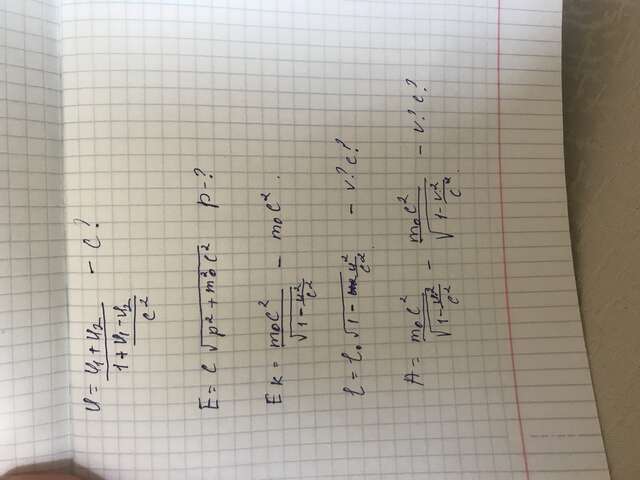 υ = (υ₁ + υ₂) / (1 + (υ₁ - υ₂) / c²) - c?
E = c √(p² + m₀² c²) p - ?
Eк = m₀c² / √(1 - υ²/c²) - m₀c².
l = l₀ √(1 - υ²/c²) - v? c?
A = m₀c² / √(1 - υ²/c²) - m₀c² / √(1 - v²/c²) - v? c?